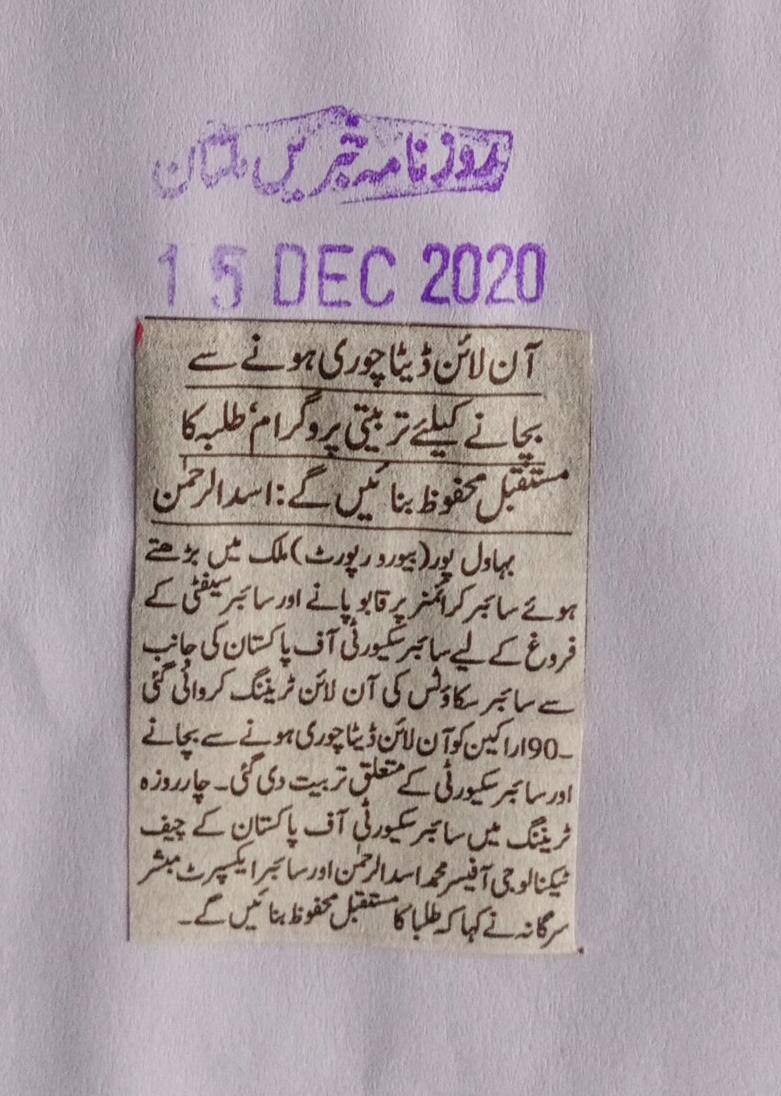 روزنامہ خبریں ملتان
15 DEC 2020
آن لائن ڈیٹا چوری ہونے سے
بچانے کیلئے تربیتی پروگرام، طلبہ کا
مستقبل محفوظ بنائیں گے: اسد الرحمٰن
بہاول پور (بیورو رپورٹ) ملک میں بڑھتے
ہوئے سائبر کرائمز پر قابو پانے اور سائبر سیفٹی کے
فروغ کے لیے سائبر سکیورٹی آف پاکستان کی جانب
سے سائبر سکاؤٹس کی آن لائن ٹریننگ کروائی گئی
۔190 اراکین کو آن لائن ڈیٹا چوری ہونے سے بچانے
اور سائبر سکیورٹی کے متعلق تربیت دی گئی۔ چار روزہ
ٹریننگ میں سائبر سکیورٹی آف پاکستان کے چیف
ٹیکنالوجی آفیسر محمد اسد الرحمٰن اور سائبر ایکسپرٹ مبشر
سرگانہ نے کہا کہ طلبا کا مستقبل محفوظ بنائیں گے۔